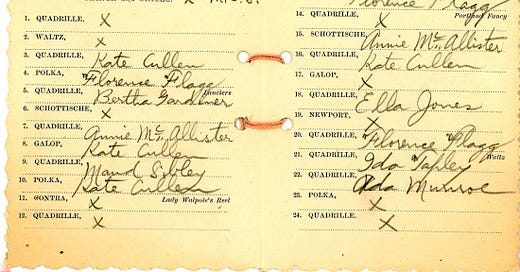 1. QUADRILLE, X
2. WALTZ, X
3. QUADRILLE, Kate Cullen
4. POLKA, Florence Flagg
5. QUADRILLE, Bertha Gardiner Lanciers
6. SCHOTTISCHE, X
7. QUADRILLE, Annie McAllister
8. GALOP, Kate Cullen
9. QUADRILLE, Maud Sibley
10. POLKA, Kate Cullen
11. CONTRA, X Lady Walpole's Reel
12. QUADRILLE, X
Florence Flagg
14. QUADRILLE, X Portland Fancy
15. SCHOTTISCHE, Annie McAllister
16. QUADRILLE, Kate Cullen
17. GALOP, X
18. QUADRILLE, Ella Jones
19. NEWPORT, X
20. QUADRILLE, Florence Flagg
21. QUADRILLE, Ida Tapley Waltz
22. QUADRILLE, Ada Munroe
23. POLKA, X
24. QUADRILLE, X